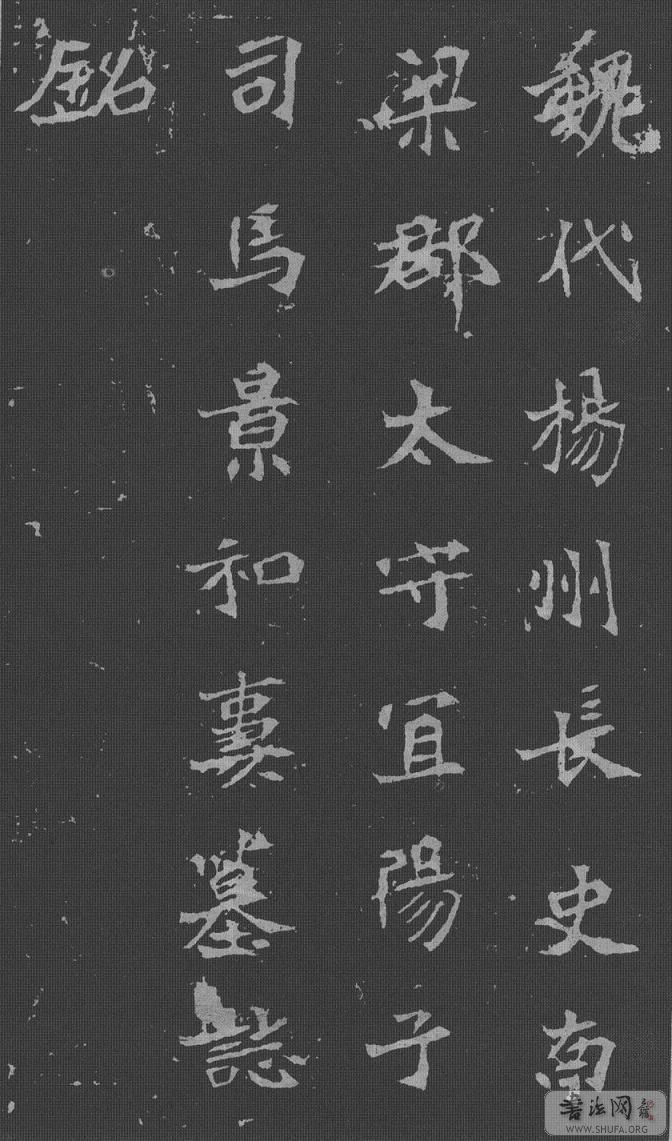 魏代楊州長史南
梁郡太守宜陽子
司馬景和妻墓誌
銘
書法网
WWW.SHUFA.ORG